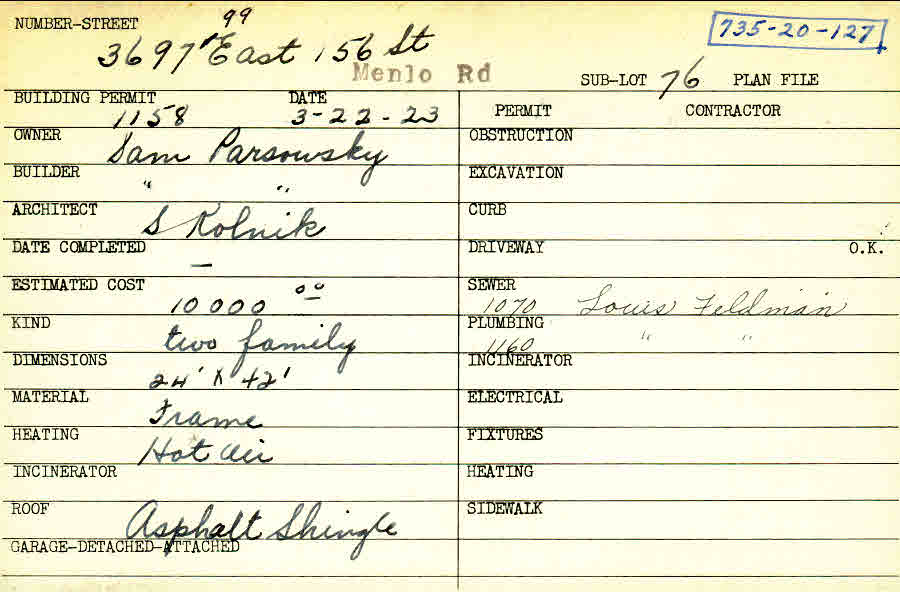 NUMBER-STREET 99 735-20-127
3697 East 156 St
Menlo Rd SUB-LOT 76 PLAN FILE
BUILDING PERMIT DATE PERMIT CONTRACTOR
1158 3-22-23
OWNER Sam Parsowsky OBSTRUCTION
BUILDER " " EXCAVATION
ARCHITECT S Kolnik CURB
DATE COMPLETED — DRIVEWAY O.K.
ESTIMATED COST 10000 00 SEWER 1070 Louis Feldman
KIND two family PLUMBING 1160 " "
DIMENSIONS 24' X 42' INCINERATOR
MATERIAL Frame ELECTRICAL
HEATING Hot Air FIXTURES
INCINERATOR HEATING
ROOF Asphalt Shingle SIDEWALK
GARAGE-DETACHED-ATTACHED